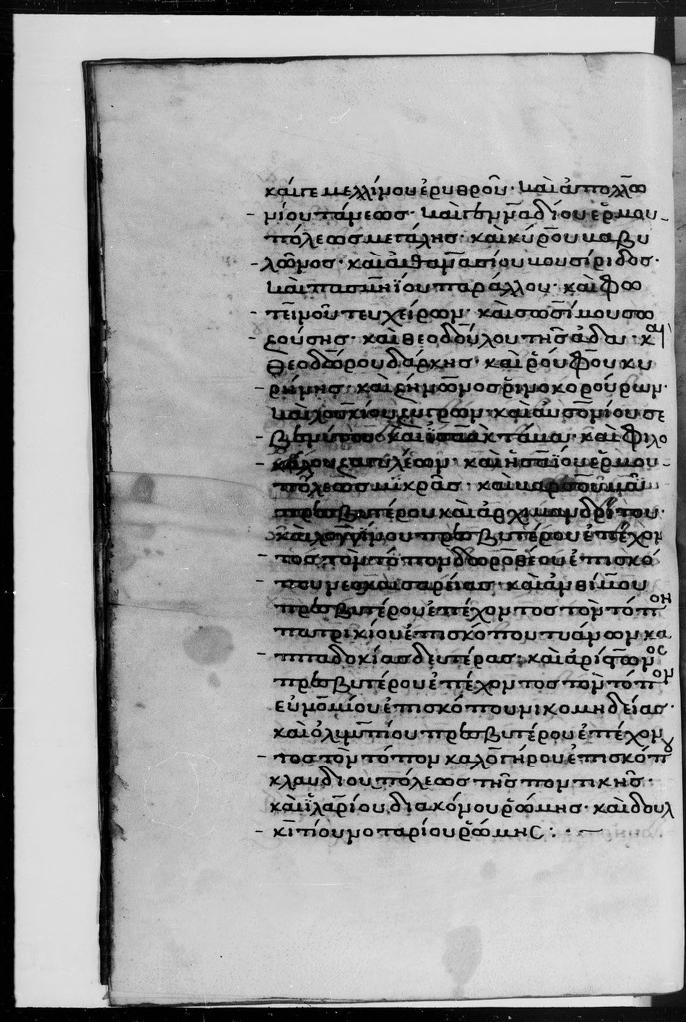 καὶ γεμελλίνου ἐρυθροῦ· καὶ ἀπολλω
νίου τάμεως· καὶ γεμναδίου ἑρμου
πόλεως μεγάλης· καὶ κύρου βαβυ
λῶνος· καὶ ἀθανασίου βουσίριδος·
καὶ πασμηΐου παράλλου· καὶ φω
τεινοῦ τευχείρων· καὶ σωσίμου σω
ζούσης· καὶ θεοδούλου τησάδαι· κ(αὶ)
θεοδώρου δάρνης· καὶ ῥούφου κυ
ρήνης· καὶ ζήνωνος ῥινοκορούρων·
καὶ
καὶ φιλο
καὶ ἡσαΐου ἑρμου
πόλεως μικρᾶς· καὶ
πρεσβυτέρου καὶ ἀρχιμανδρίτου·
καὶ λογγίνου πρεσβυτέρου ἐπέχον
τος τὸν τόπον δωροθέου ἐπισκό
που νεοκαισαρείας· καὶ ἀνθίμου
πρεσβυτέρου ἐπέχοντος τὸν τόπον
πατρικίου ἐπισκόπου τυάνων κα
ππαδοκίας δευτέρας· καὶ ἀρίστωνος
πρεσβυτέρου ἐπέχοντος τὸν τόπον
εὐνομίου ἐπισκόπου νικομηδείας·
καὶ ὀλυμπίου πρεσβυτέρου ἐπέχον
τος τὸν τόπον καλογήρου ἐπισκόπου
κλαυδιουπόλεως τῆς ποντικῆς·
καὶ ἱλαρίου διακόνου ῥώμης· καὶ δουλ
κιτίου νοταρίου ῥώμης:·~